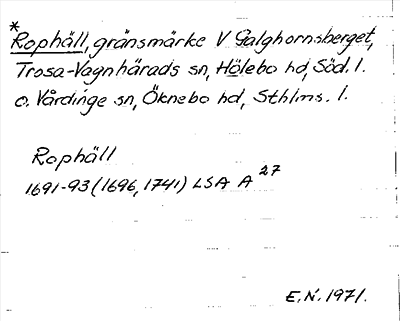 *
Rophäll, gränsmärke V Galghornsberget,
Trosa-Vagnhärads sn, Hölebo hd, Söd. l.
o. Vårdinge sn, Öknebo hd, Sthlms. l.
Rophäll
1691-93 (1696, 1741) LSA A 27
E.N. 1971.